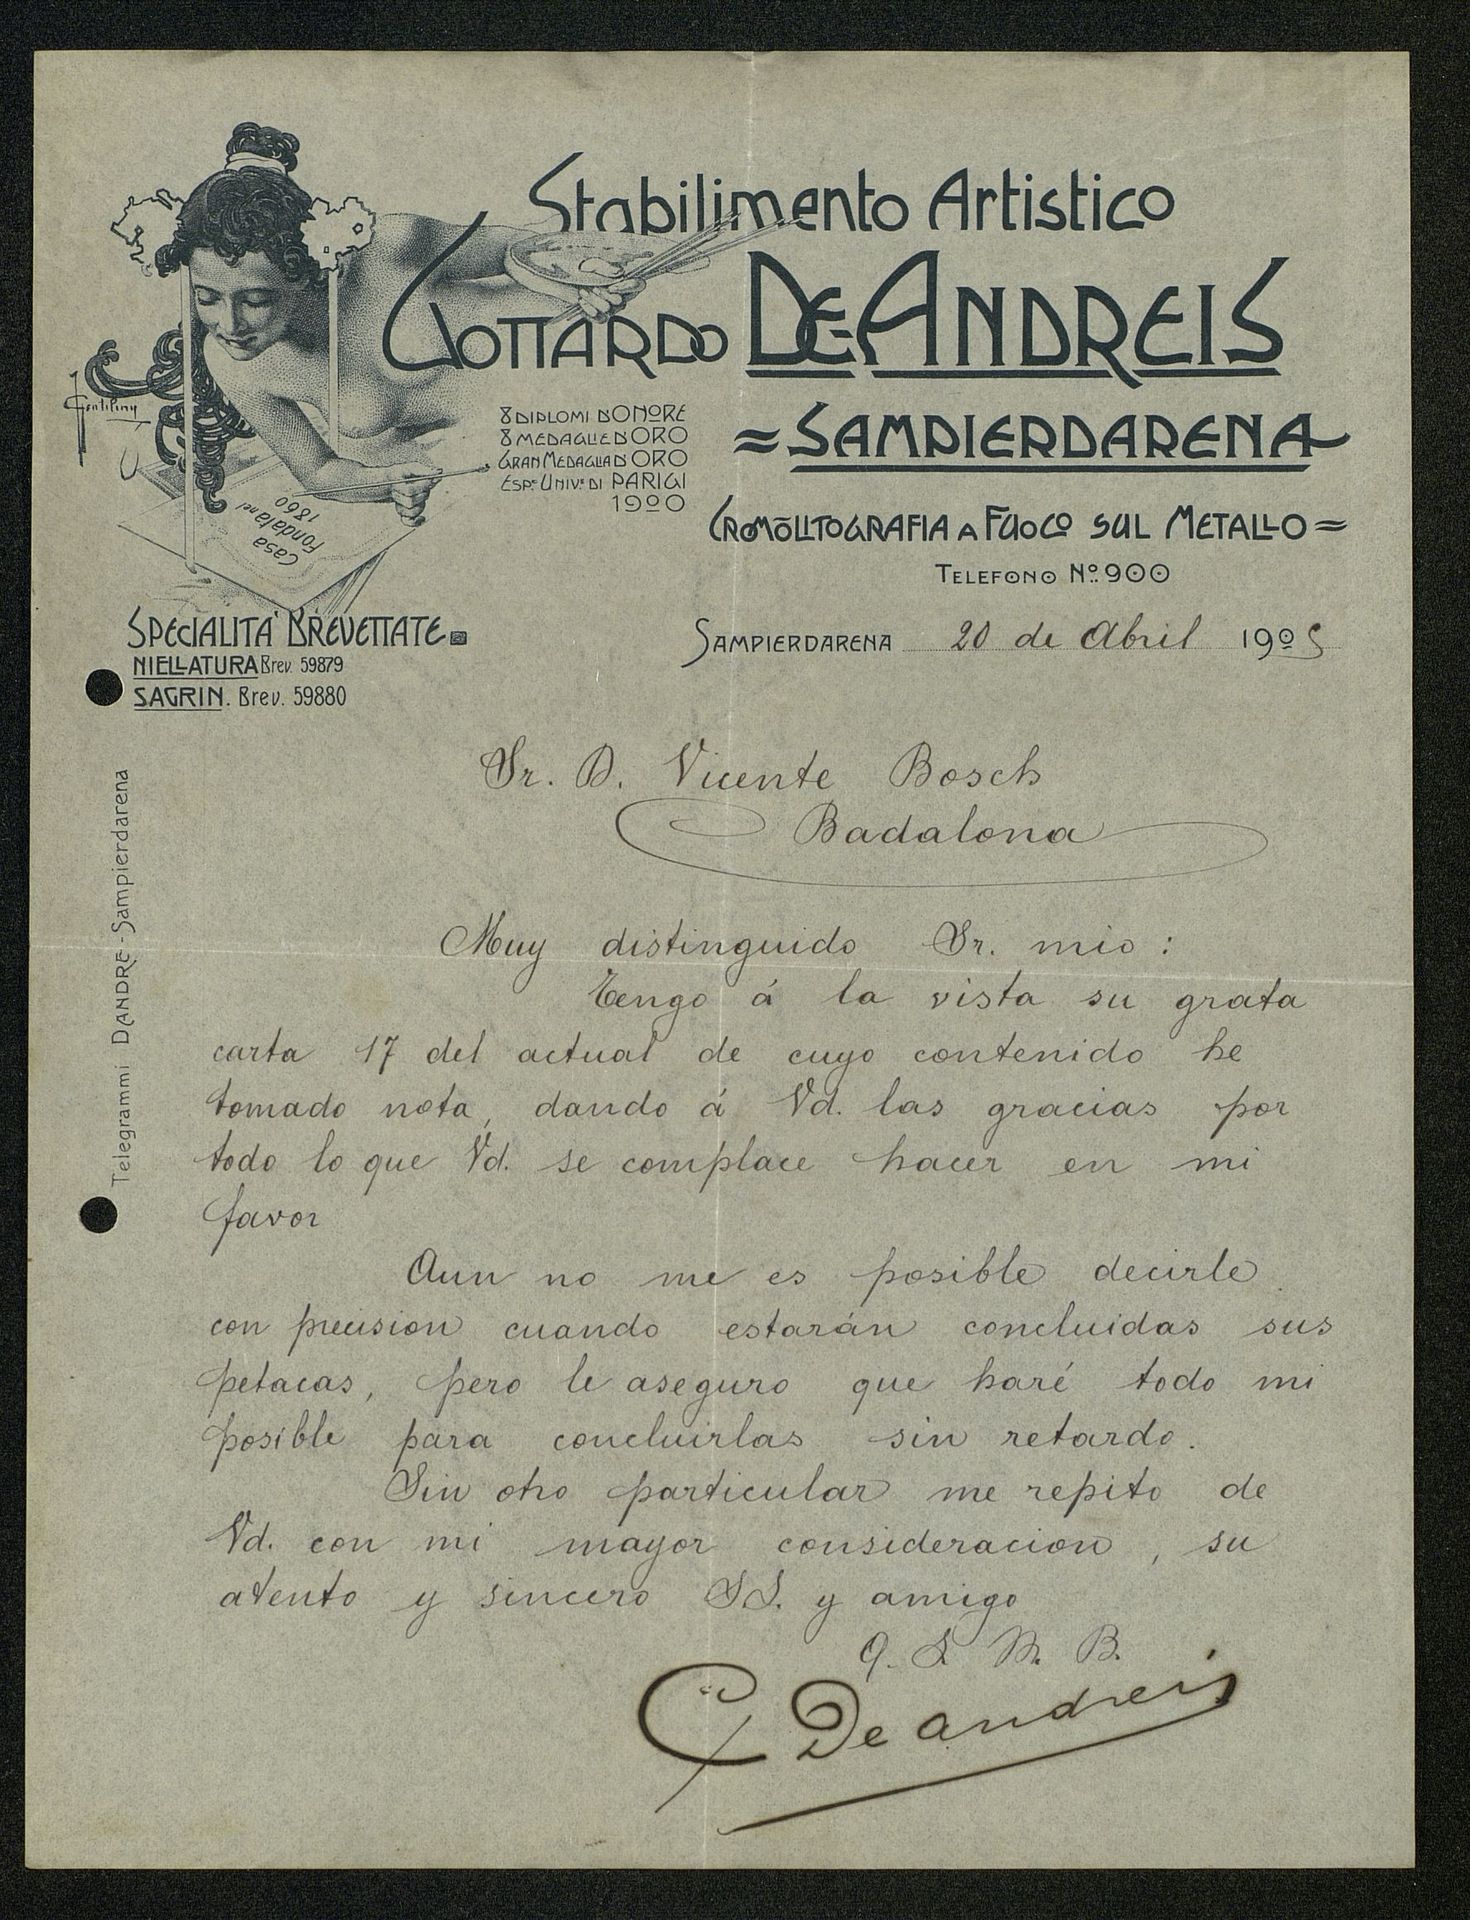 Stabilimento Artistico
Gottardo De-Andreis
=Sampierdarena
8 Diplomi d'Onore
8 Medaglie d'Oro
Gran Medaglia d'Oro
Esp.e Univ.e di Parigi
1900
Cromolitografia a Fuoco sul Metallo=
Telefono No. 900
Gentiliny
Casa
Fondata nel
1860
Specialità Brevettate
NIELLATURA Brev. 59879
SAGRIN. Brev. 59880
Sampierdarena 20 de Abril 1905
Telegrammi DANDRE-Sampierdarena
Sr. D. Vicente Bosch
Badalona
Muy distinguido Sr. mio:
Tengo á la vista su grata
carta 17 del actual de cuyo contenido he
tomado nota, dando á Vd. las gracias por
todo lo que Vd. se complace hacer en mi
favor
Aun no me es posible decirle
con precision cuando estarán concluidas sus
petacas, pero le aseguro que haré todo mi
posible para concluirlas sin retardo.
Sin otro particular me repito de
Vd. con mi mayor consideracion, su
atento y sincero SS. y amigo
Q. S. M. B.
G De andreis